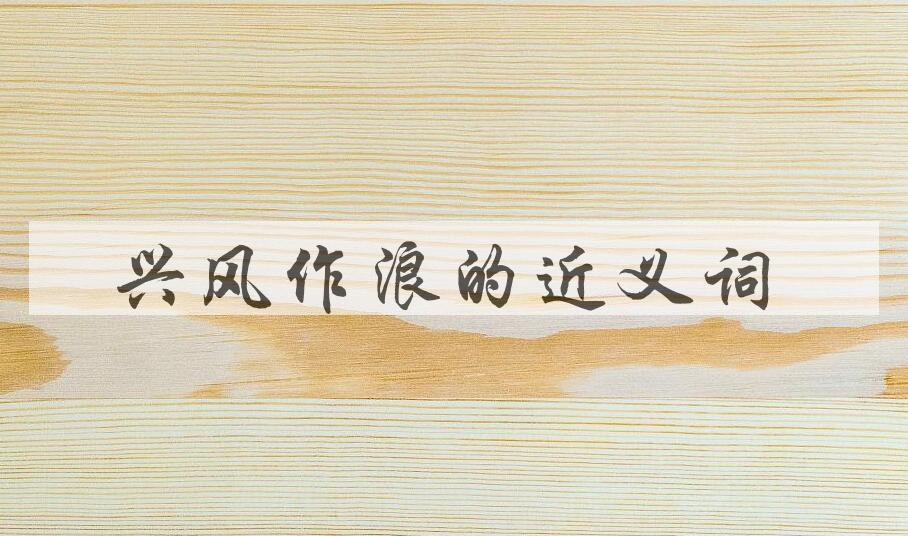 兴风作浪的近义词